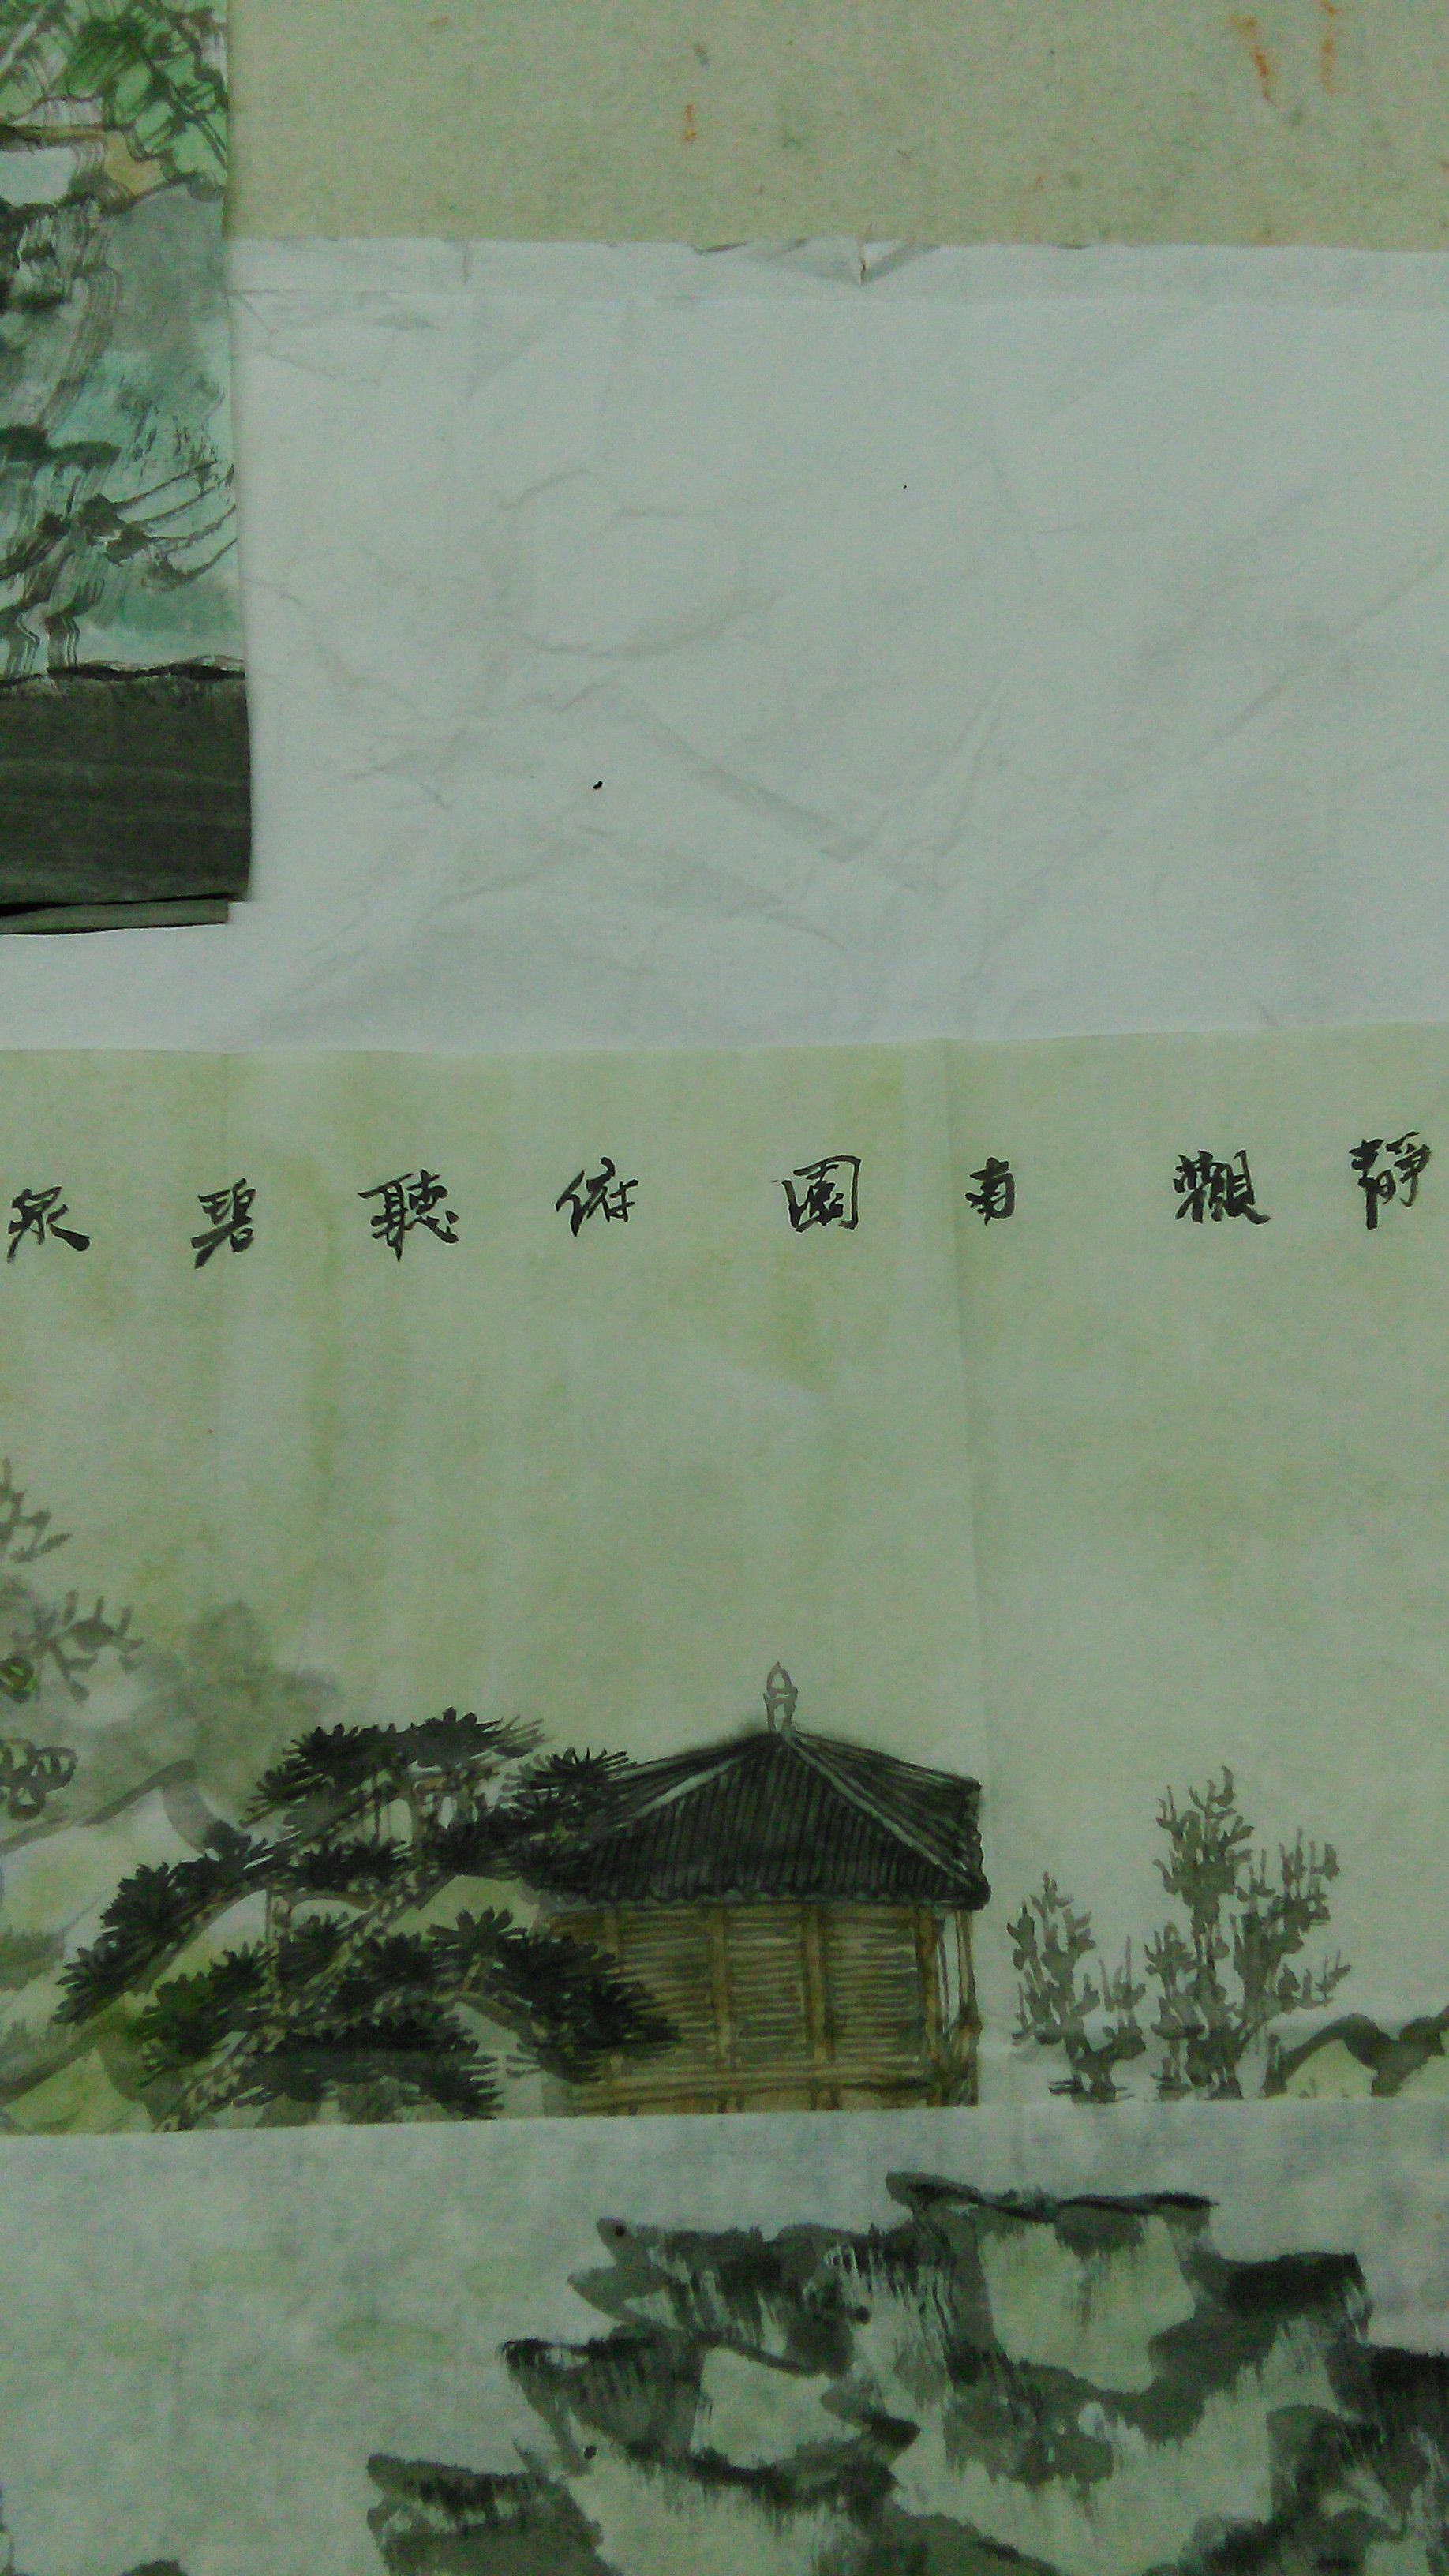 靜觀南園俯聽碧泉